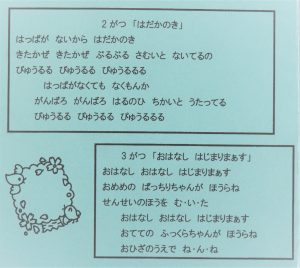 2がつ「はだかのき」
はっぱが ないから はだかのき
きたかぜ きたかぜ ぶるぶる さむいと ないてるの
ぴゅうるる ぴゅうるる ぴゅうるるる
はっぱがなくても なくもんか
がんばろ がんばろ はるのひ ちかいと うたってる
ぴゅうるる ぴゅうるる ぴゅうるるる
3がつ「おはなし はじまりまぁす」
おはなし おはなし はじまりまぁす
おめめの ぱっちりちゃんが ほうらね
せんせいのほうを む・い・た
おはなし おはなし はじまりまぁす
おてての ふっくらちゃんが ほうらね
おひざのうえで ね・ん・ね